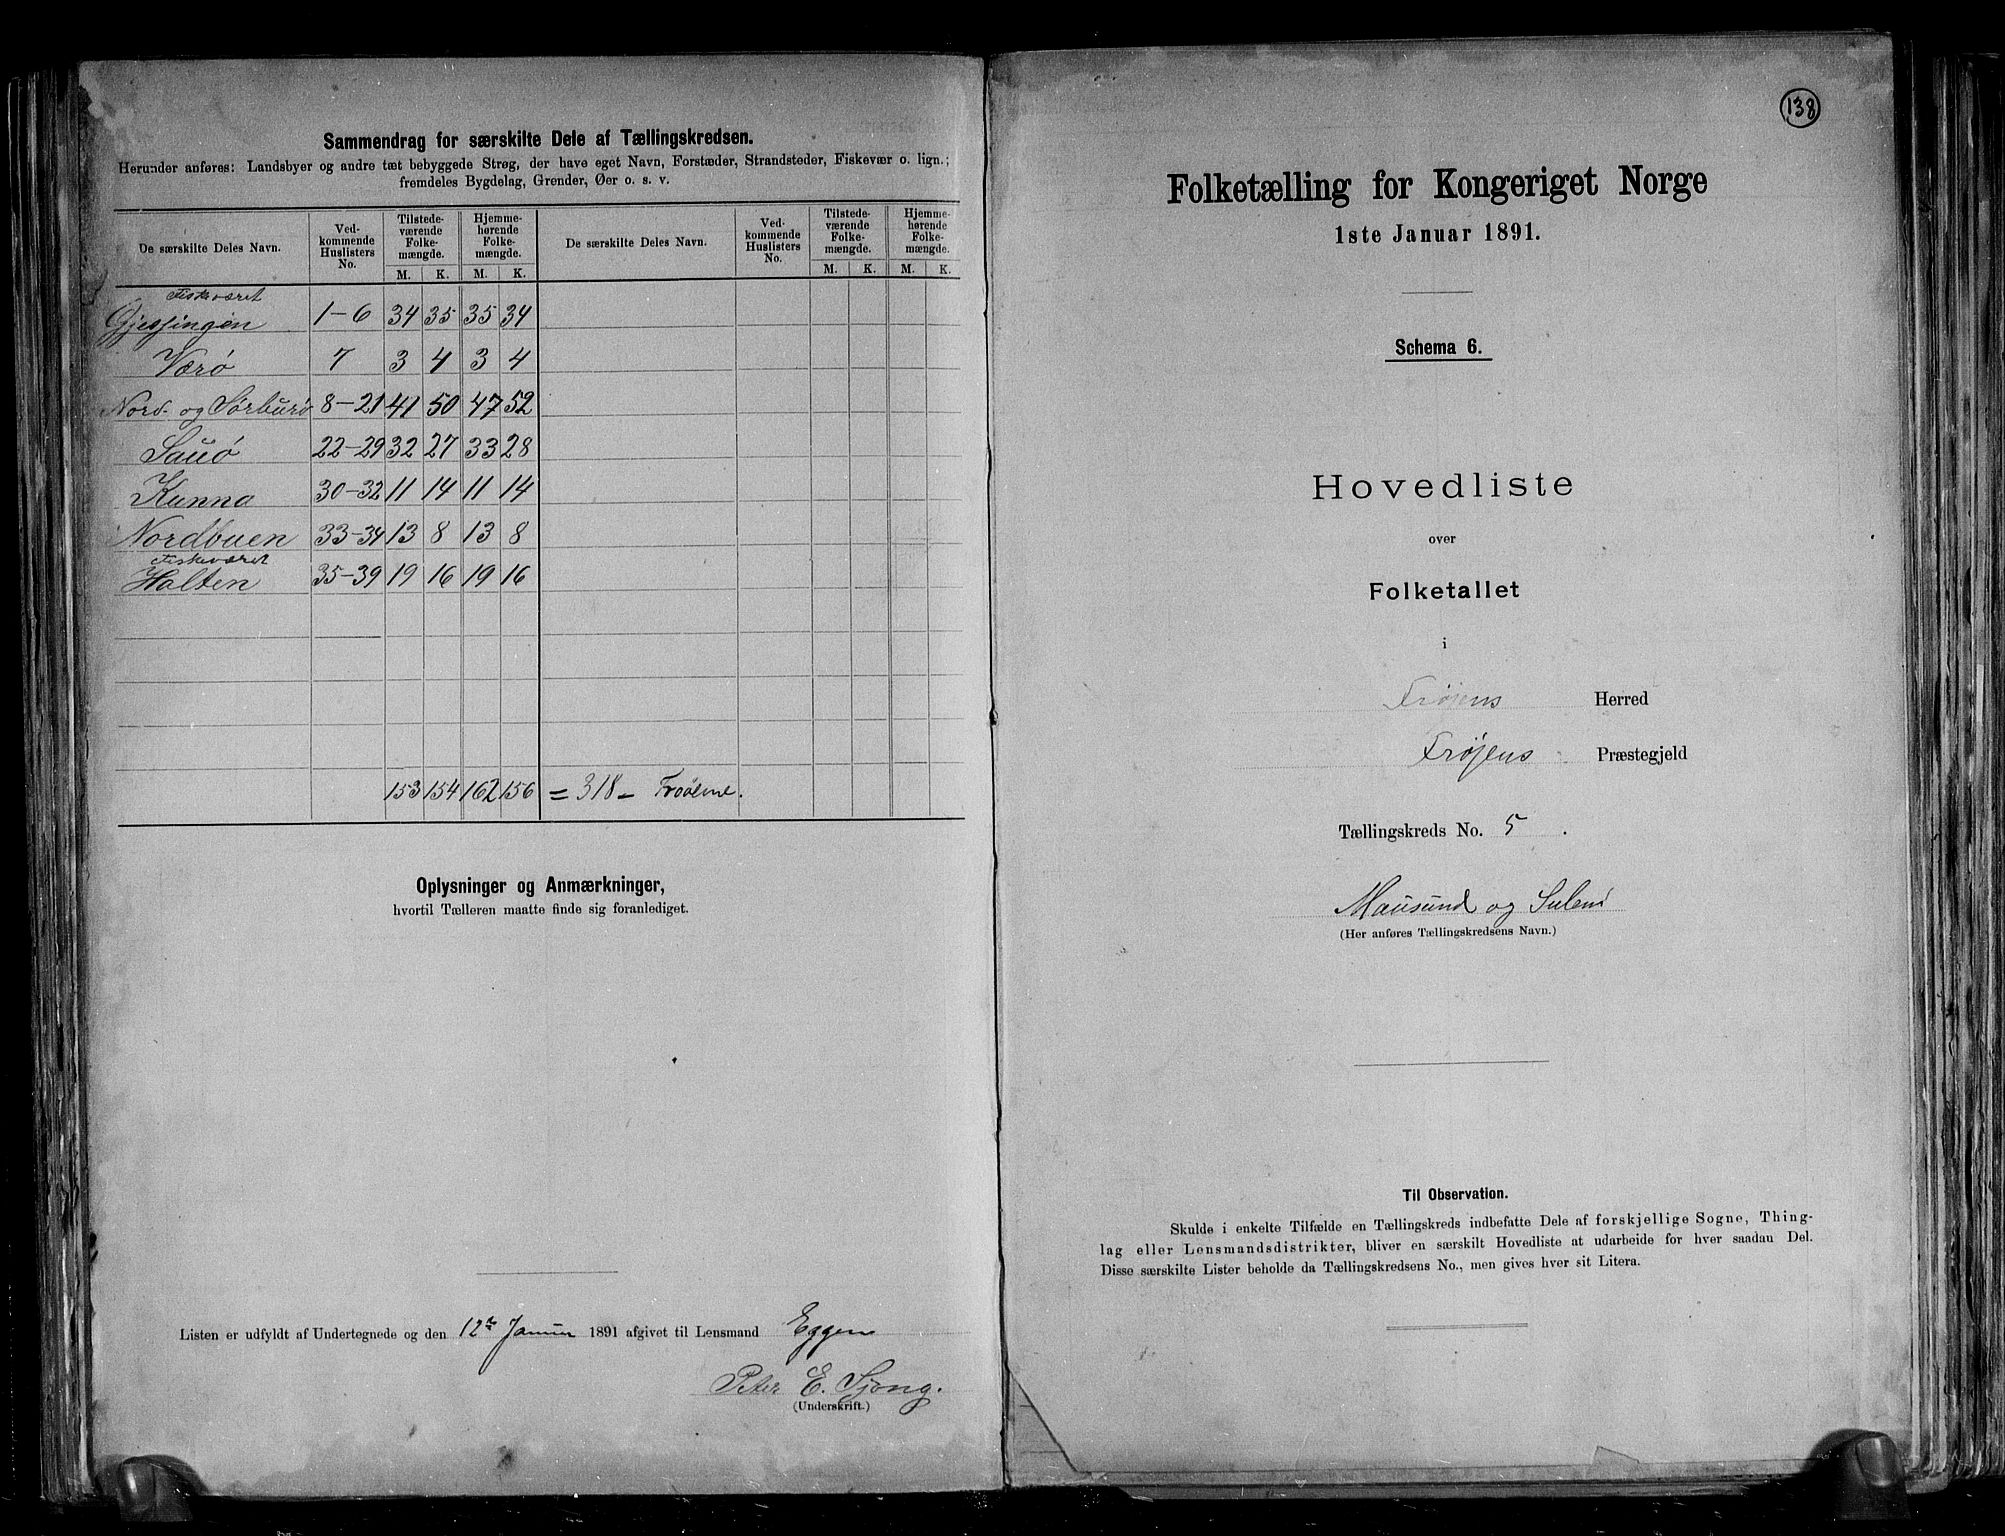 Sammendrag for særskilte Dele af Tællingskredsen.
Herunder anføres: Landsbyer og andre tæt bebyggede Strøg, der have eget Navn, Forstæder, Strandsteder, Fiskevær o. lign.;
fremdeles Bygdelag, Grender, Øer o. s. v.
De særskilte Deles Navn. Ved-kommende Huslisters No. Tilstede-værende Folke-mængde. Hjemme-hørende Folke-mængde. De særskilte Deles Navn. Ved-kommende Huslisters No. Tilstede-værende Folke-mængde. Hjemme-hørende Folke-mængde.
M. K. M. K. M. K. M. K.
Fiskeværet
Gjessingen 1-6 34 35 35 34
Værø 7 3 4 3 4
Nord- og Sørburø 8-21 41 50 47 52
Sauø 22-29 32 27 33 28
Kunna 30-32 11 14 11 14
Nordbuen 33-34 13 8 13 8
Fiskeværet
Halten 35-39 19 16 19 16
153 154 162 156 = 318 - Froøerne.
Oplysninger og Anmærkninger,
hvortil Tælleren maatte finde sig foranlediget.
Listen er udfyldt af Undertegnede og den 12te Januar 1891 afgivet til Lensmand Eggen
Peter E. Sjong.
(Underskrift.)
138
Folketælling for Kongeriget Norge
1ste Januar 1891.
Schema 6.
Hovedliste
over
Folketallet
i
Frøjens Herred
Frøjens Præstegjeld
Tællingskreds No. 5.
Mausund og Sulen
(Her anføres Tællingskredsens Navn.)
Til Observation.
Skulde i enkelte Tilfælde en Tællingskreds indbefatte Dele af forskjellige Sogne, Thing-
lag eller Lensmandsdistrikter, bliver en særskilt Hovedliste at udarbeide for hver saadan Del.
Disse særskilte Lister beholde da Tællingskredsens No., men gives hver sit Litera.